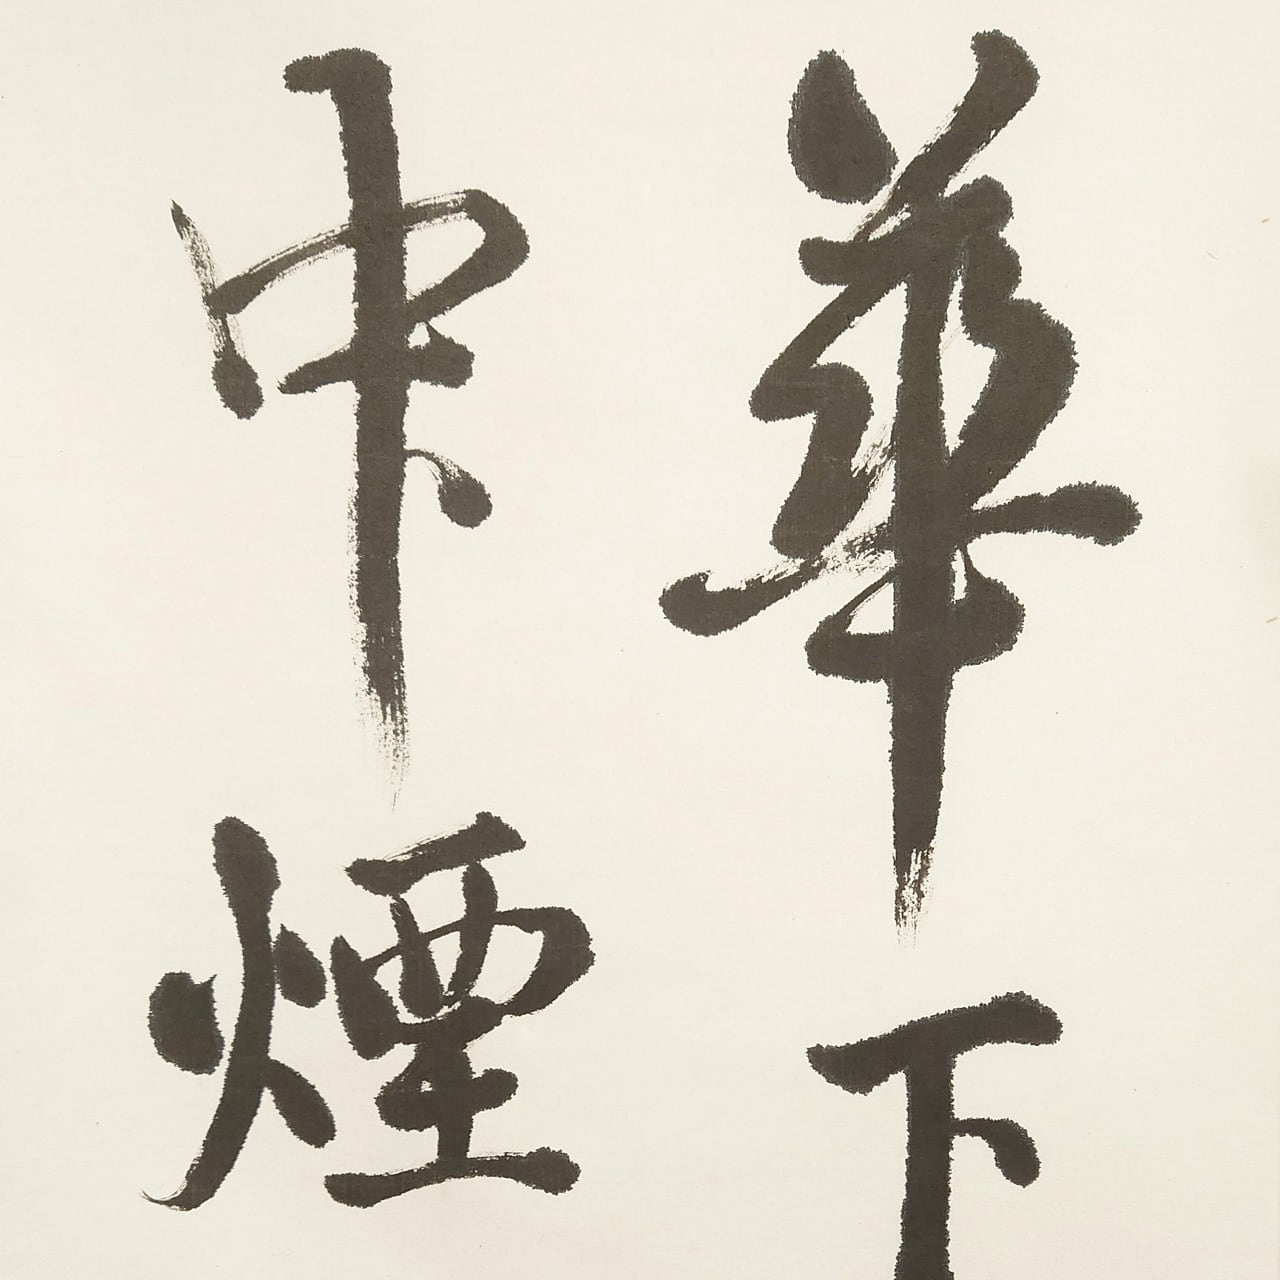 華下
中煙